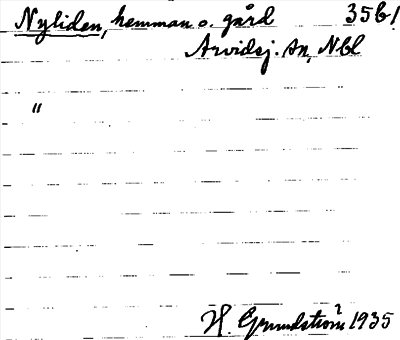 Nyliden, hemman o. gård 35b!
Arvidsj. sn, Nbl
"
H. Grundström 1935